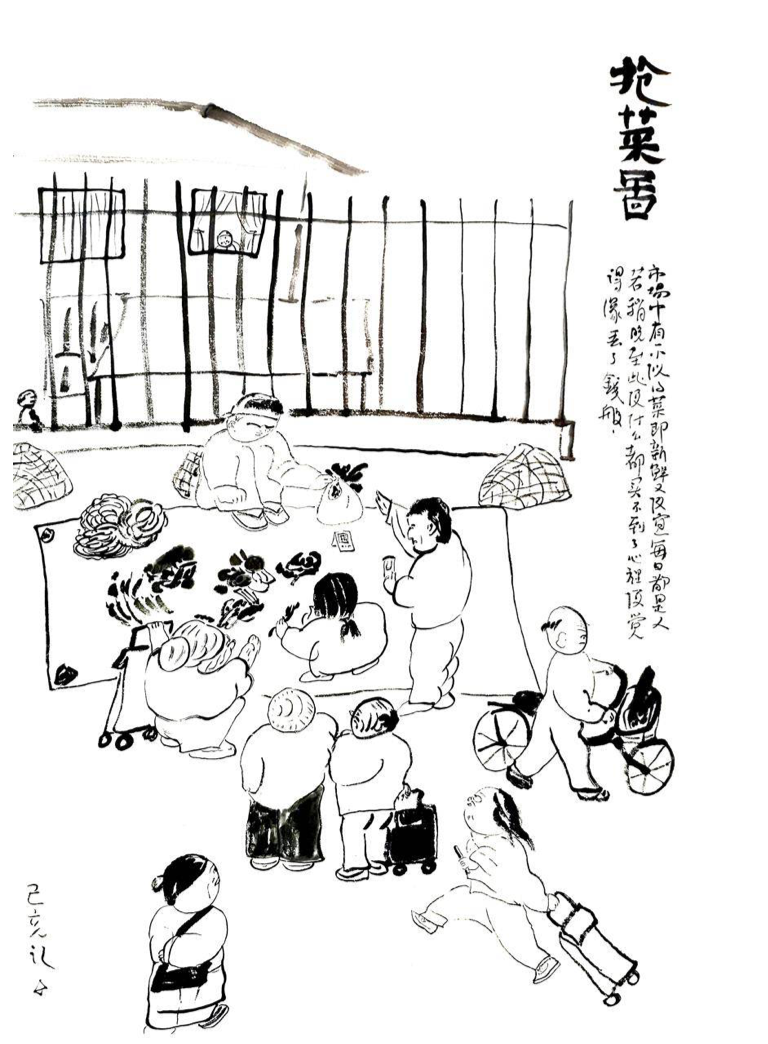 抢菜啚
市场中有小伙的菜即新鲜又便宜每日都是人
若稍晚至此便什么都买不到了心裡便觉
得像丢了錢般.
己亥记